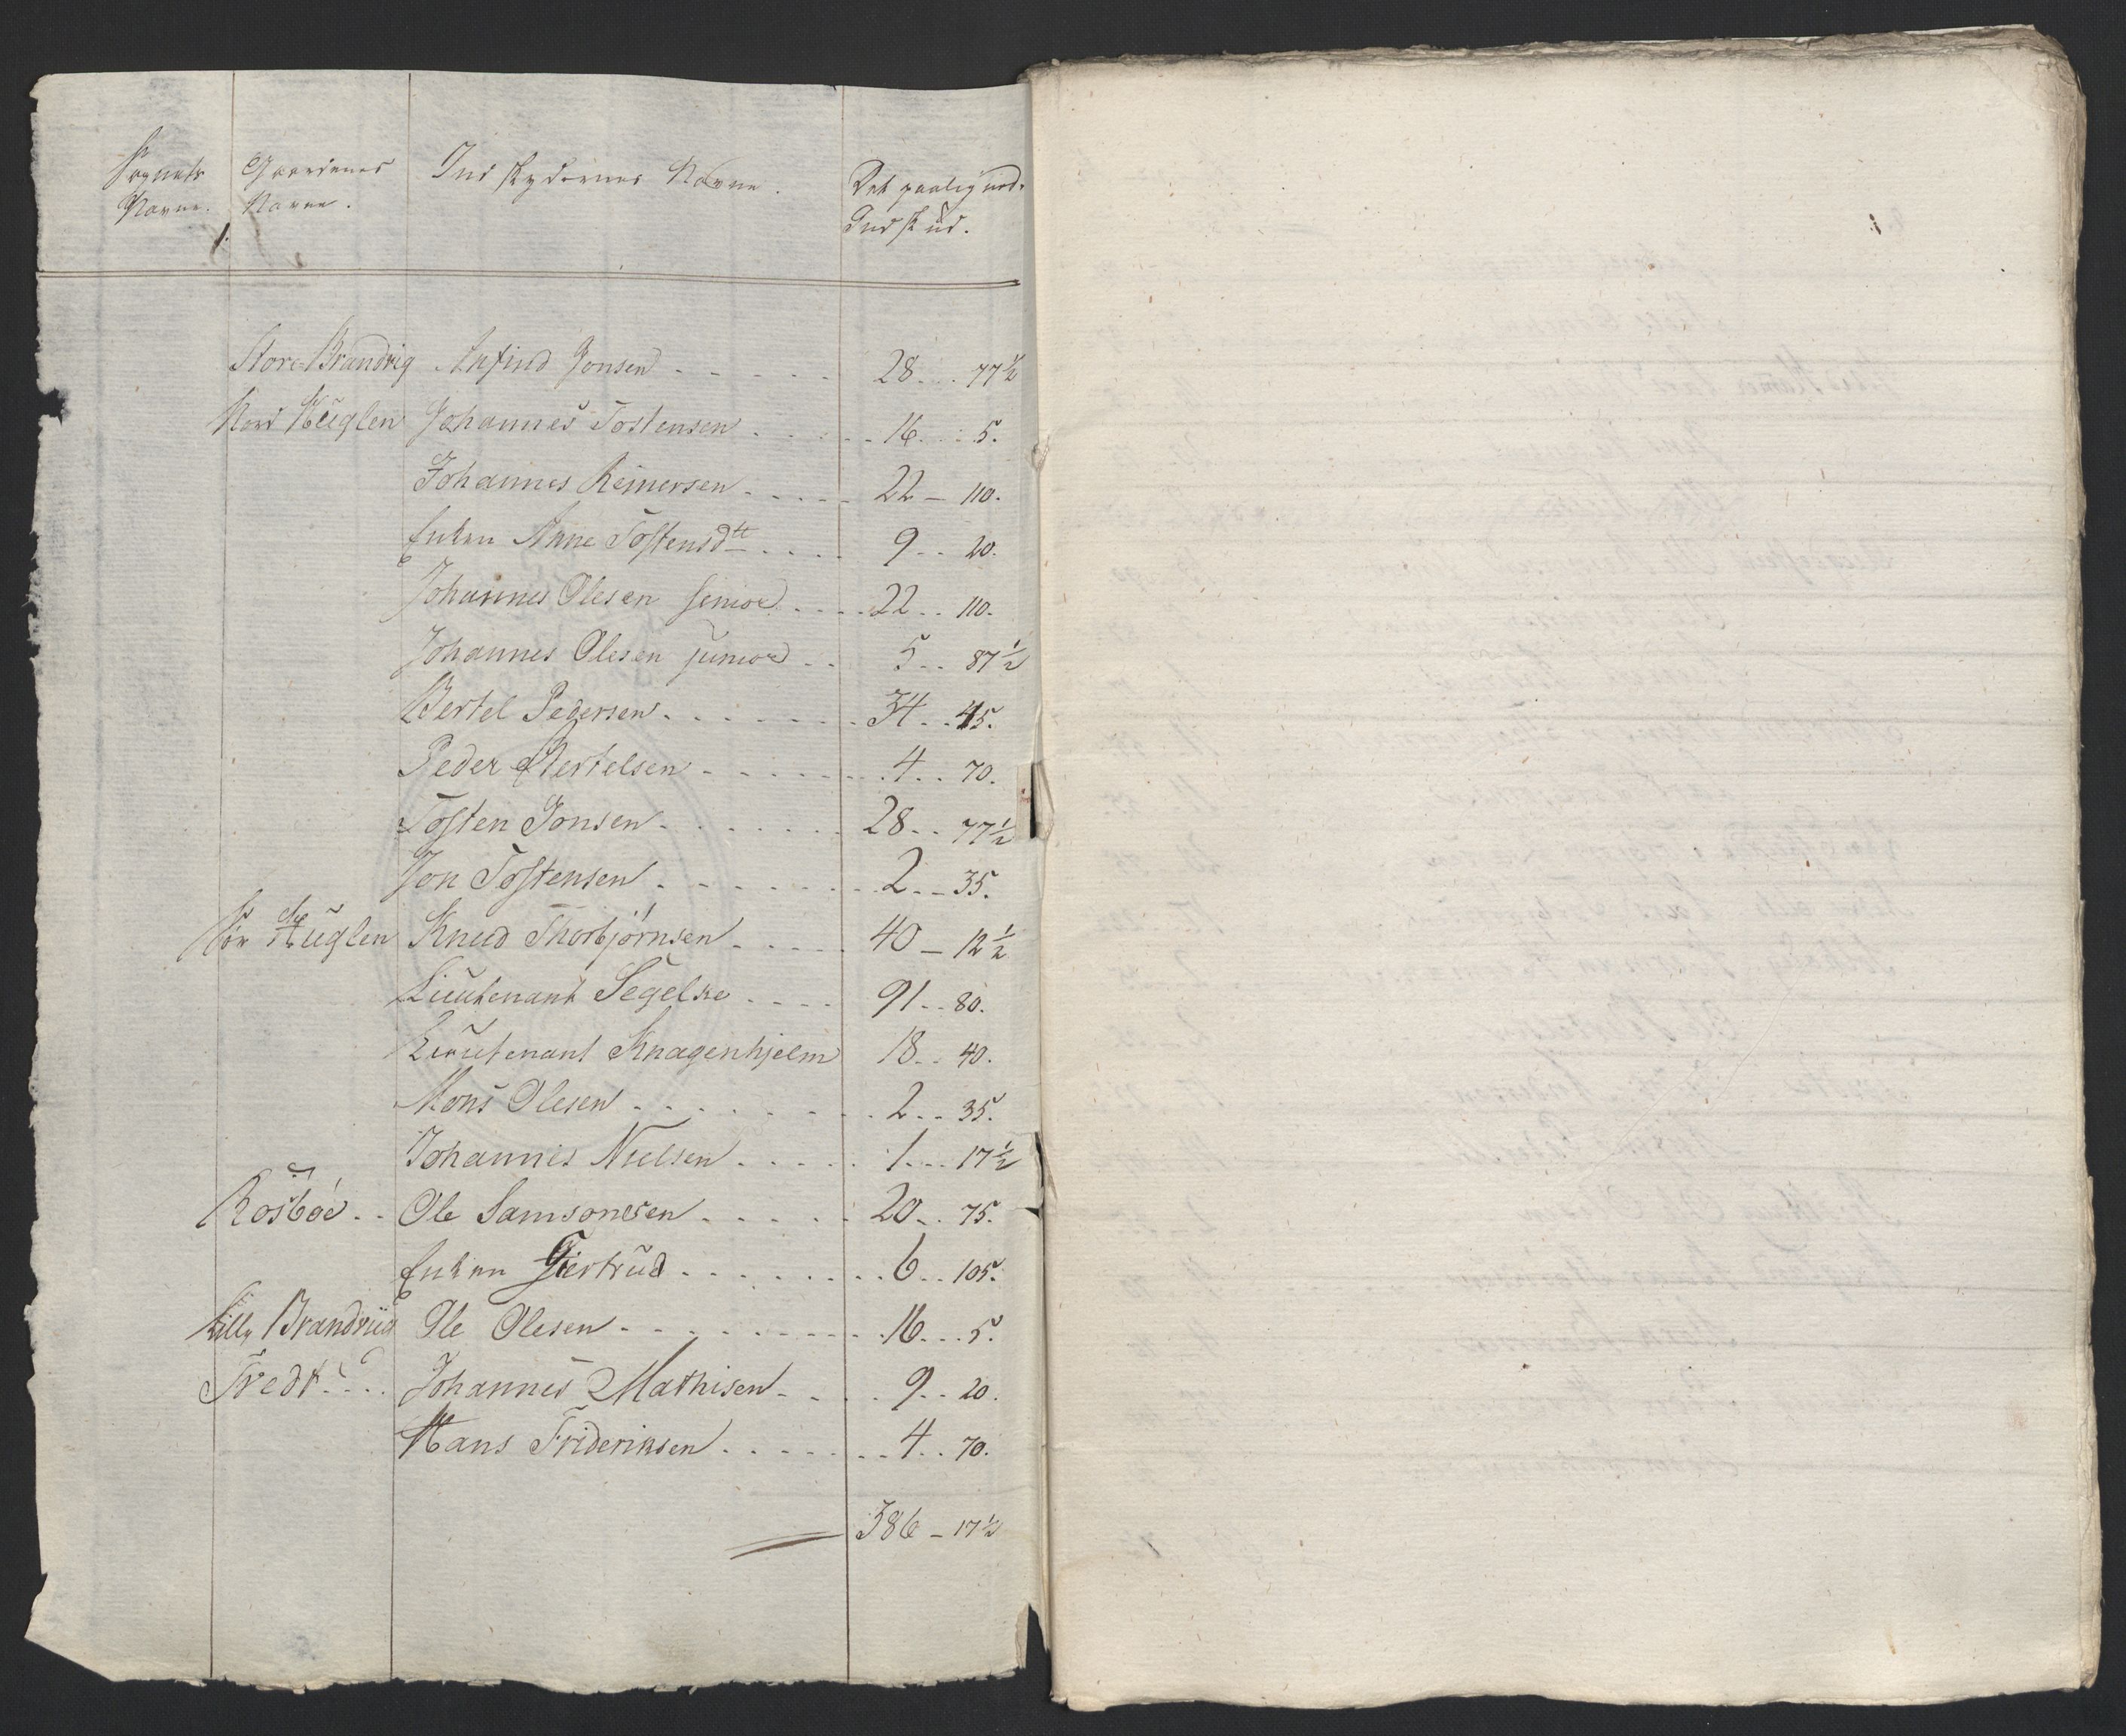 Sognets Navne. Gaardenes Navne. Indskydernes Navne. Det paalignede Indskud.
Store Brandvig Anfind Jonsen 28 . . 77 1/2
Nord Huglen Johannes Tostensen 16 . . 5.
Johannes Reinersen 22 – 110.
Enken Anne Tostensdtt 9 . . 20.
Johannes Olesen senior 22 . . 110.
Johannes Olesen junior 5 . . 87 1/2
Bertel Pedersen 34 . . 45.
Peder Bertelsen 4 . . 70.
Tosten Jonsen 28 . . 77 1/2
Jon Tostensen 2 . . 35.
Sør Huglen Knud Thorbjørnsen 40 – 12 1/2
Lieutenant Segelke 91 . . 80.
Lieutenant Knagenhjelm 18 . . 40.
Mons Olesen 2 . . 35.
Johannes Nielsen 1 . . 17 1/2
Rosboe . . Ole Samsonesen 20 . . 75.
Enken Giertrud 6 . . 105.
Lille Brandviig Ole Olesen 16 . . 5.
Tvedt . . . Johannes Mathisen 9 . . 20.
Hans Frideriksen 4 . . 70.
386 – 17 1/2